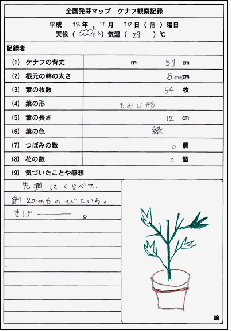 全国発芽マップ ケナフ観察記録
平成 12年 7月 10日(月)曜日
天候( )気温( 29 )℃
記録者
(1) ケナフの背丈 m 37 cm
(2) 根元の茎の太さ 5 mm
(3) 葉の枚数 54 枚
(4) 葉の形 もみじ形
(5) 葉の長さ 12 cm
(6) 葉の色 緑
(7) つぼみの数 0 個
(8) 花の数 個
(9) 気づいたことや感想
先週にくらべて、
約20cmものびている。
絵